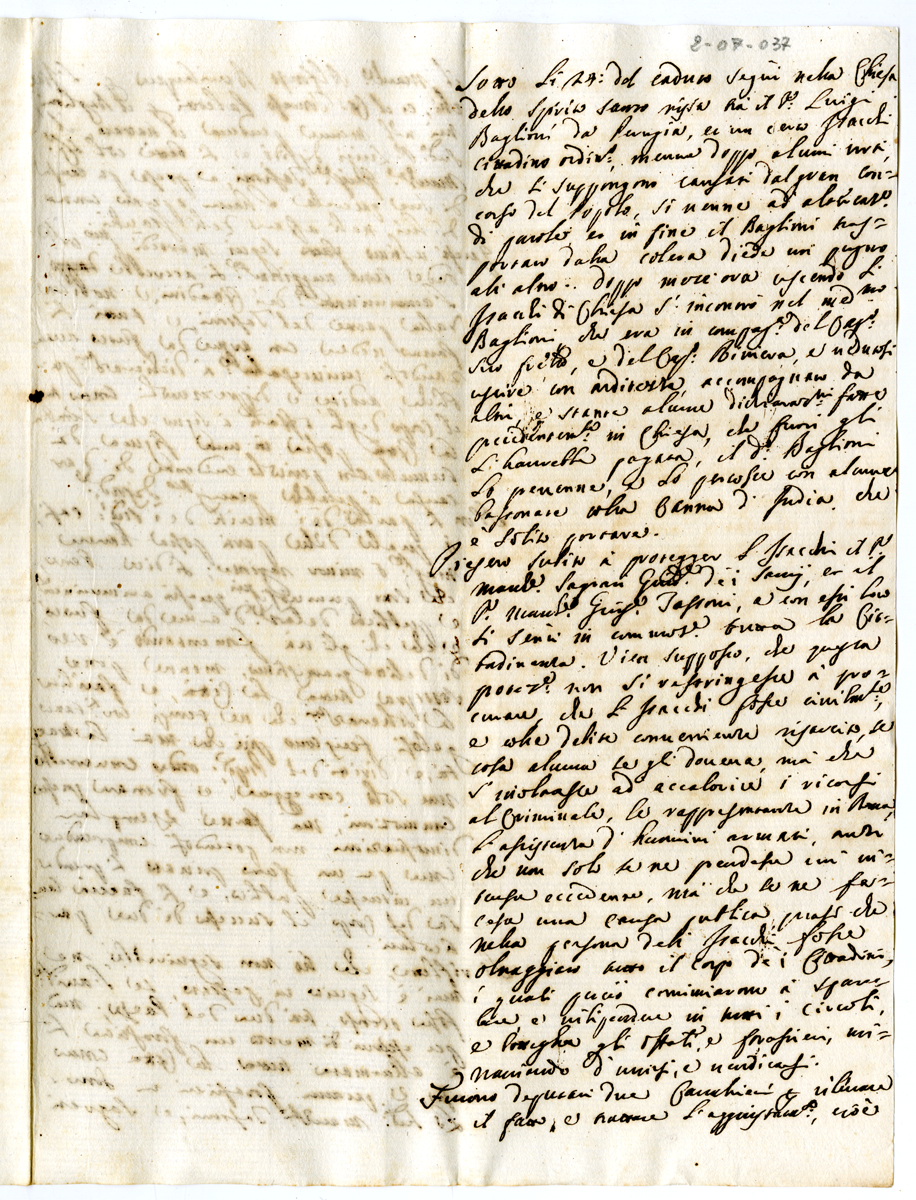 2-07-037
Sotto li 24: del caduto seguì nella Chiesa
dello Spirito Santo rissa trà il Sr. Luigi
Baglioni da Perugia, et un certo Isacchi
Cittadino ordinº, mentre doppo alcuni urti,
che si suppongono causati dal gran con=
corso del Popolo, si venne ad
di parole, et in fine il Baglioni tras=
portato dalla colera diede un pugno
all'altro: doppo mezz'ora uscendo l'
Isacchi di Chiesa s'incontrò nel medmo
Baglioni che era in compagª del Capº
suo frello, e del Capº Binieva, e
uscire con arditezza, accompagnato da
altri, e stante alcune dichiaratni fatte
precedentemte in Chiesa, che fuori gli
l'haurebbe pagata, il dº Baglioni
lo prevenne, e lo percosse con alcune
bastonate colla Canna d'India, che
è solito portare.
Presero subito à protegger l'Isacchi il Sr
March. Sagrati Giud. de i Savij, et il
Sr. March. Gius. Tassoni, e con essi loro
si sentì in commoze tutta la Cit=
tadinanza. Vien supposto, che questa
protezne non si restringesse à pro=
curare, che l'Isacchi fosse civilmte,
e colle delite convenienze risarcito, se
cosa alcuna se gli doveva, mà che
s'inoltrasse ad accalorire i ricorsi
al Criminale, le rappresentanze in Roma,
l'assistenza d'huomini armati, anzi
che non solo se ne prendesse un im=
pegno eccedente, mà che se ne fa=
cesse una causa publica quasi che
nella persona dell'Isacchi fosse
oltraggiato tutto il corpo de i Cittadini,
i quali perciò cominciarono à sparlare
e vilipendere in tutti i Circoli,
e botteghe gli Offiti, e forastieri, mi=
nacciando d'unirsi, e vendicarsi.
Furono deputati due Cavalieri à rilevare
il fatto, e trattare l'aggiustamº, cioè